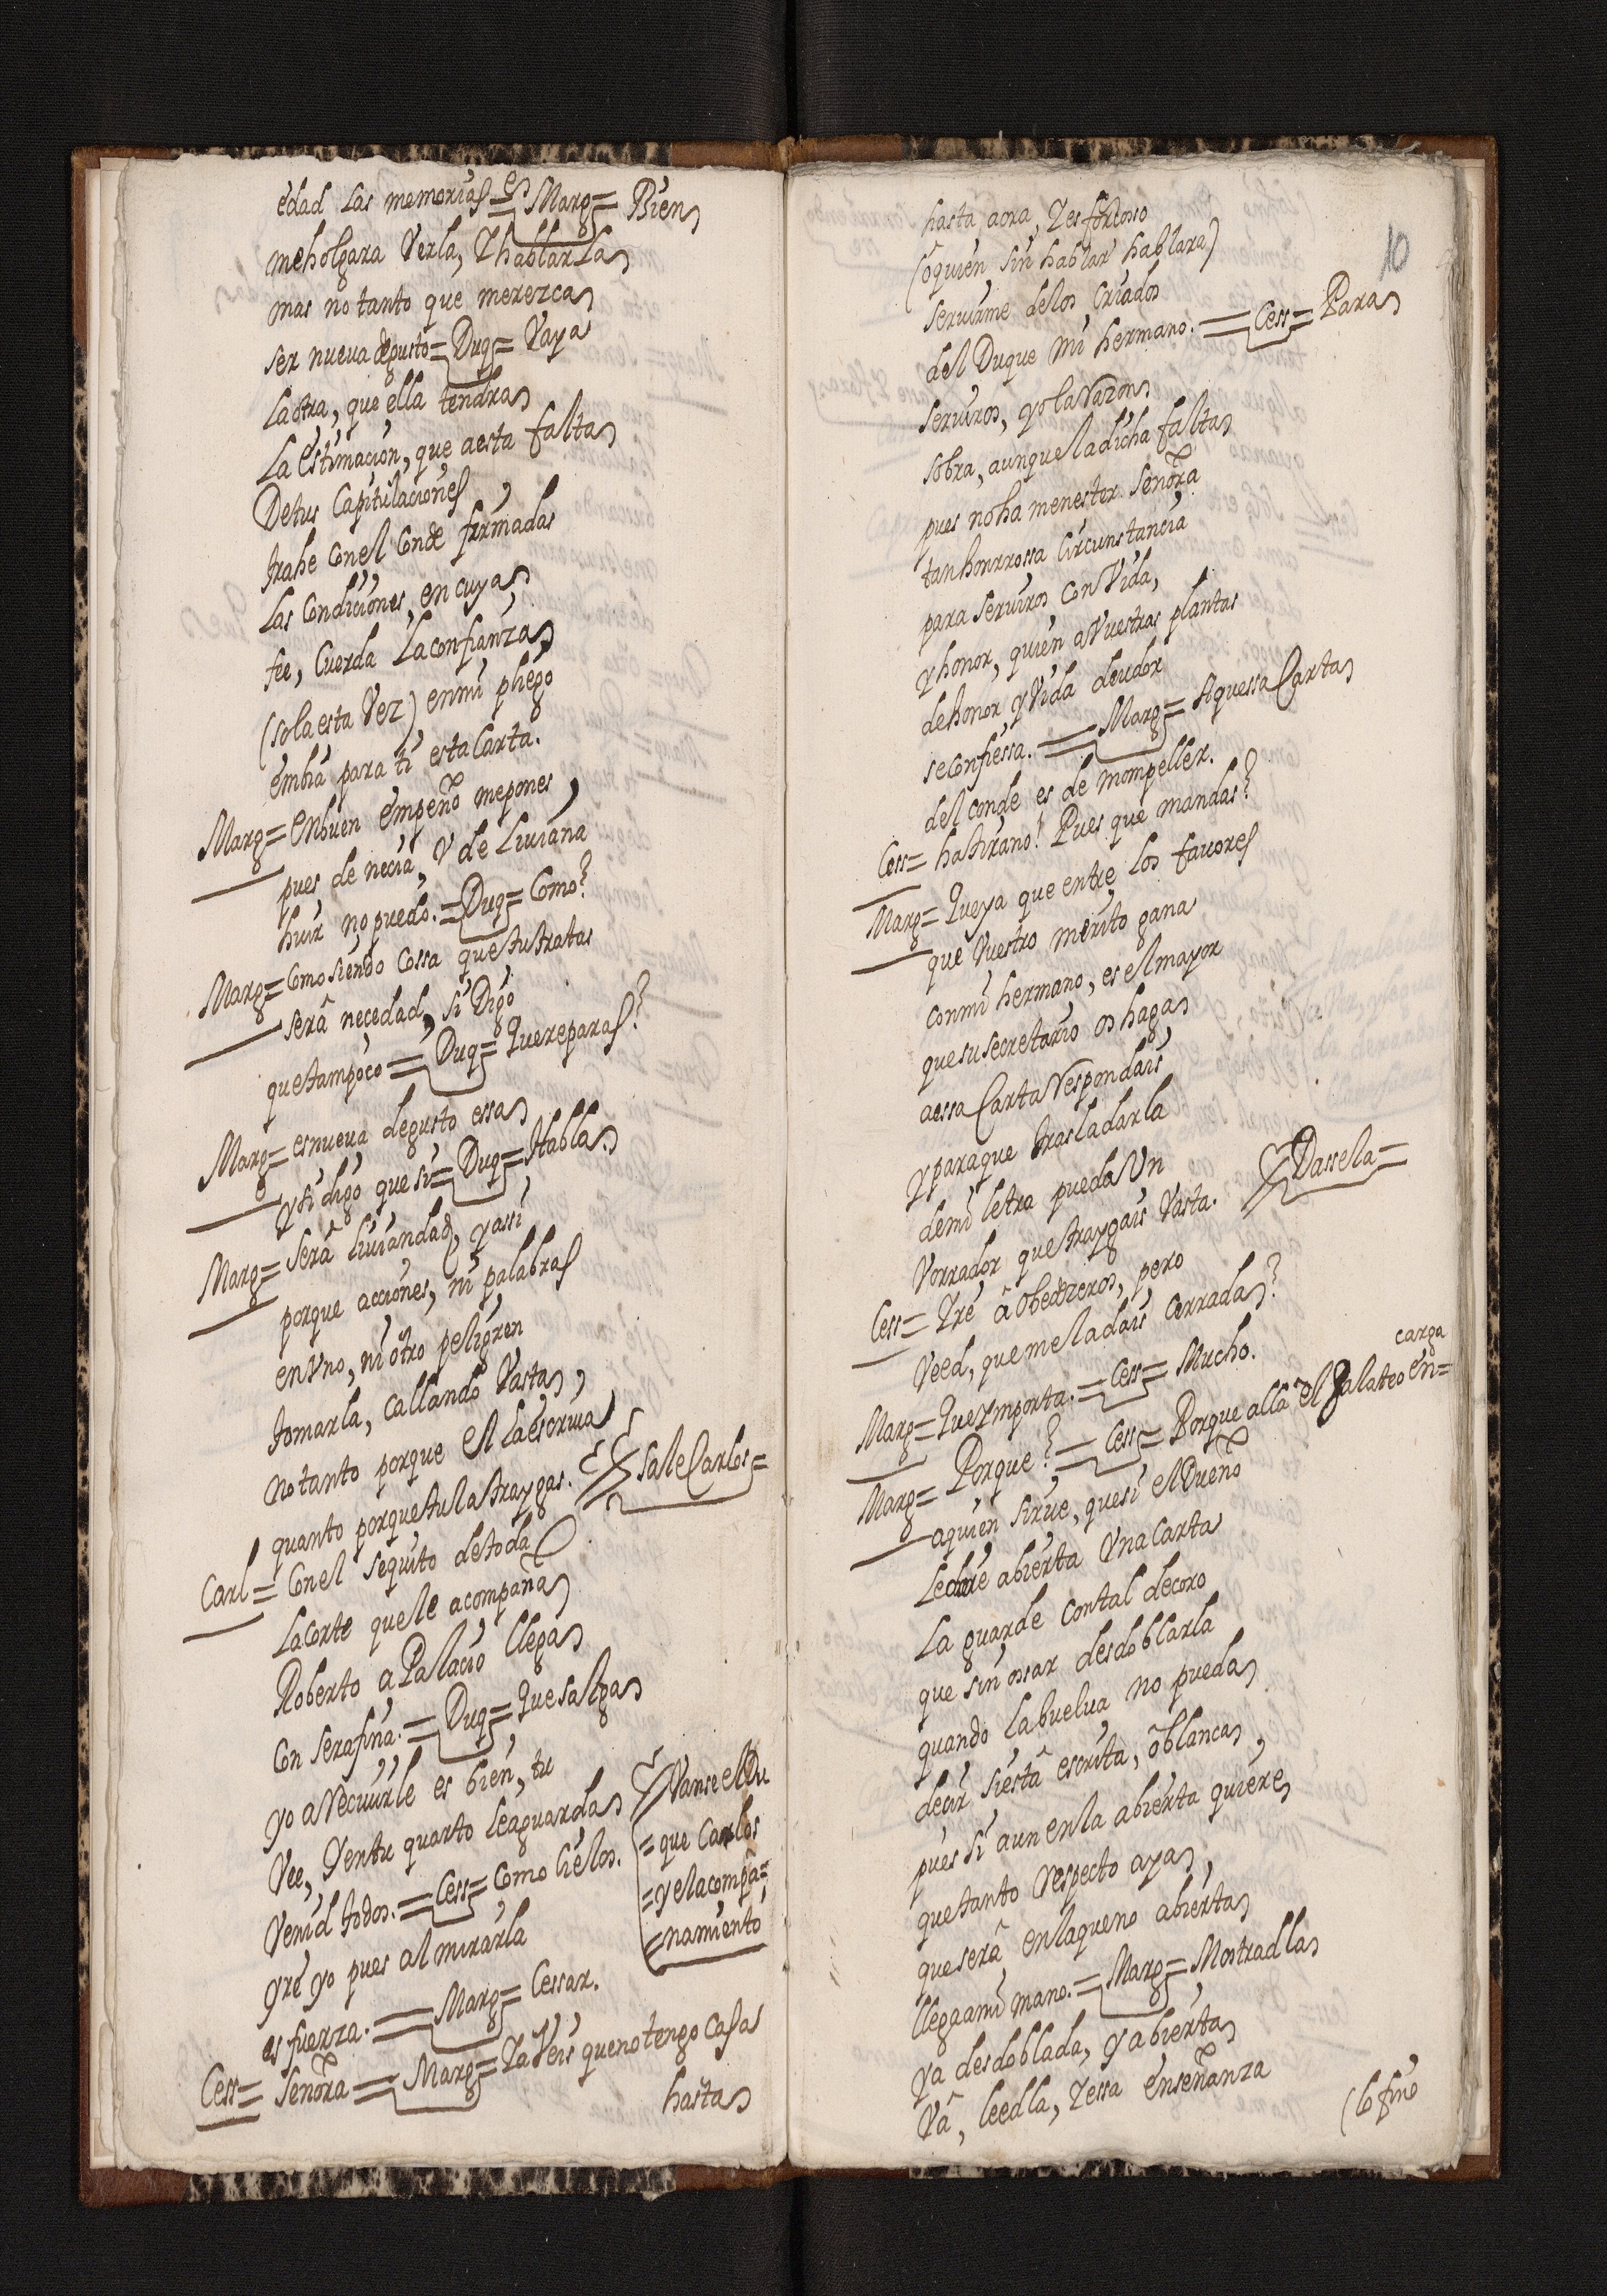 edad las memorias = Marg = Bien
meholgara Verla, Y hablarla
mas no tanto que merezca
ser nueva de gusto = Duq = Vaya
la otra, que ella tendra
La estimacion, que aesta falta
Detus Capitulaciones
trahe conel Conde firmadas
las Condiciones, en cuya
fee, Cuerda La confianza
(sola esta Vez) enmi pliego
embia para ti esta Carta.
Marg = enbuen empeño mepones,
pues de necia, Y de Liuiana
huir no puedo. = Duq = Como?
Marg = Como siendo cossa que tu tratas
será necedad, si Digo
que tampoco = Duq = Que reparas?
Marg = es nueua degusto essa
Y si digo que si = Duq = Habla.
Marg = Será liuiandad, y assi
porque acciones, ni palabras
en Vno, ni otro peligren
tomarla, callando Vasta,
no tanto porque el la escriua
quanto porque tu la traygas. Sale Carlos =
Carl = Con el sequito detoda
La corte que le acompaña
Roberto a Palacio llega
con serafina. = Duq = Que salga
yo a Reciuirle es bien, tu
Vee, Y entu quarto le aguarda Vanse el Du
= que Carlos
Venid todos. = Cess = Como cielos. = y el acompa =
= namiento
yré yo pues al mirarla
es fuerza. = Marg = Cessar.
Cess = Señora = Marg = Ya Veis que no tengo Casa
hasta
10
hasta aora, Y es forzoso
(o quien sin hablar hablara)
seruirme delos Criados
del Duque mi hermano. = Cess = Para
seruiros, yo la Razon
sobra, aunque la dicha falta
pues no ha menester señora
tan honrrossa Circunstancia
para seruiros con Vida,
y honor, quien a Vuestras plantas
de honor y Vida deudor
se confiessa. = Marg = Aquessa Carta
del conde es de Mompeller.
Cess = ha tirano! Pues que mandas?
Marg = Que ya que entre los fauores
que Vuestro merito gana
con mi hermano, es el mayor
que su secretario os haga
aessa Carta Respondais
y paraque trasladarla
de mi letra pueda Un
Vorrador que traygais Vasta. Dassela =
Cess = Yré â Obedezeros, pero
Veed, que me la dais cerrada?
Marg = Que Ymporta. = Cess = Mucho.
Marg = Porque? = Cess = Porque allâ el Galateo en =
carga
aquien sirue, que si el Dueño
Le diere abierta Vna Carta
La guarde con tal decoro
que sin ossar desdoblarla
quando la buelua no pueda
decir si està escrita, ô blanca,
pues si aun en la abierta quiere
que tanto Respecto aya,
que será enlaqueno abierta
llega a mi mano. = Marg = Mostradla
ya desdoblada, y abierta
Vá, leedla, Y essa enseñanza
(lo fino